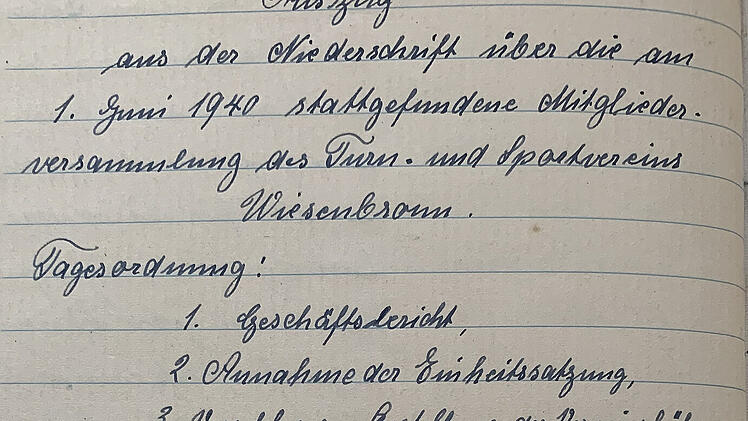 Auszug
aus der Niederschrift über die am
1. Juni 1940 stattgefundene Mitglieder-
versammlung des Turn- und Sportvereins
Wiesenbronn.
Tagesordnung:
1. Geschäftsbericht,
2. Annahme der Einheitssatzung,
3.